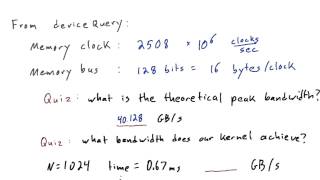 From deviceQuery:
Memory clock : 2508 * 10⁶ clocks/sec
Memory bus : 128 bits = 16 bytes/clock
Quiz: what is the theoretical peak bandwidth?
40.128 GB/s
Quiz: what bandwidth does our kernel achieve?
N=1024 time = 0.67ms ____ GB/s